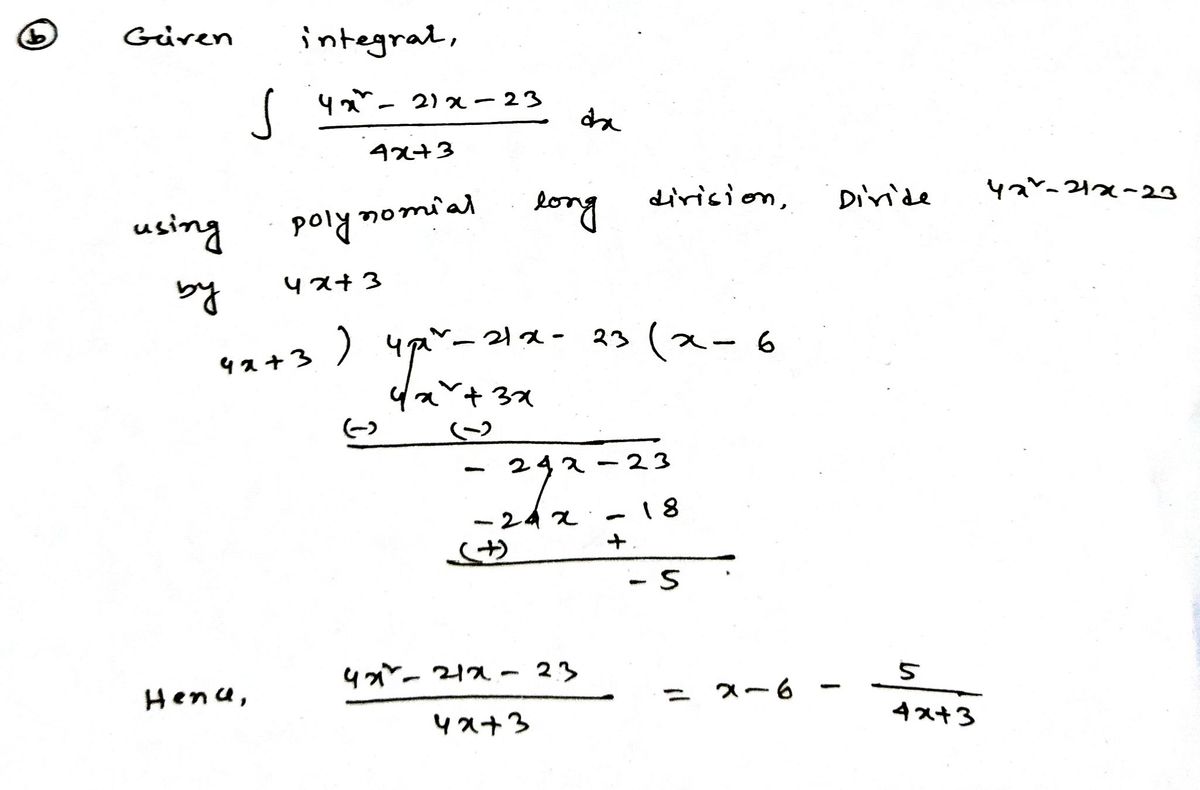 (b) Given integral,
∫ (4x² - 21x - 23)/(4x+3) dx
using polynomial long division, Divide 4x² - 21x - 23
by 4x+3
4x+3 ) 4x² - 21x - 23 ( x - 6
4x² + 3x
(-) (-)
- 24x - 23
- 24x - 18
(+) +
- 5
Hence, (4x² - 21x - 23)/(4x+3) = x - 6 - 5/(4x+3)